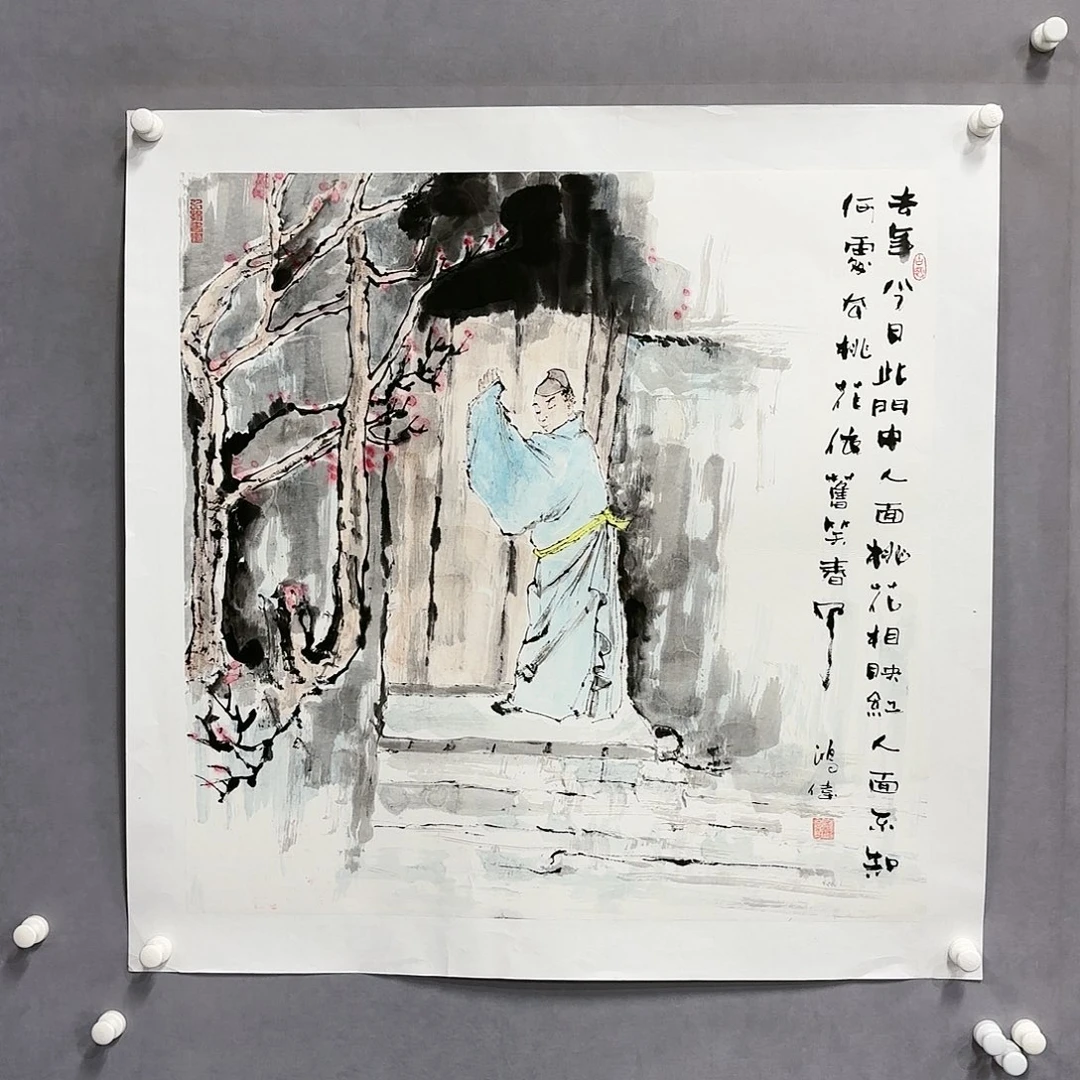 去年今日此門中人面桃花相映紅人面不知
何處去桃花依舊笑春風
鴻偉